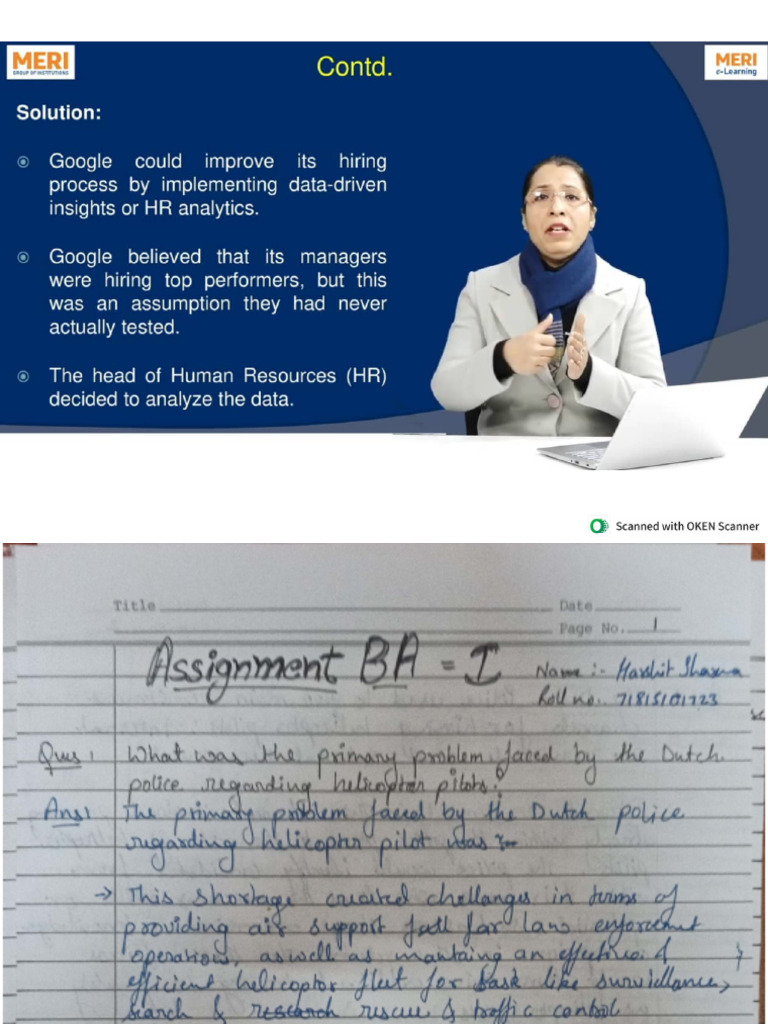 MERI
GROUP OF INSTITUTIONS
Contd.
MERI
e-Learning
Solution:
Google could improve its hiring
process by implementing data-driven
insights or HR analytics.
Google believed that its managers
were hiring top performers, but this
was an assumption they had never
actually tested.
The head of Human Resources (HR)
decided to analyze the data.
Scanned with OKEN Scanner
Title Date
Page No. 1
Assignment BA = I
Name :- Harshit Sharma
Roll no. 71815101723
Ques 1 What was the primary problem faced by the Dutch
police regarding helicopter pilots?
Ans 1 The primary problem faced by the Dutch police
regarding helicopter pilot was :-
→ This shortage created challanges in terms of
providing air support for law enforcment
operation, aswell as mantaing an effective &
efficient helicoptor fleet for task like survillance,
search & rescue & traffic control